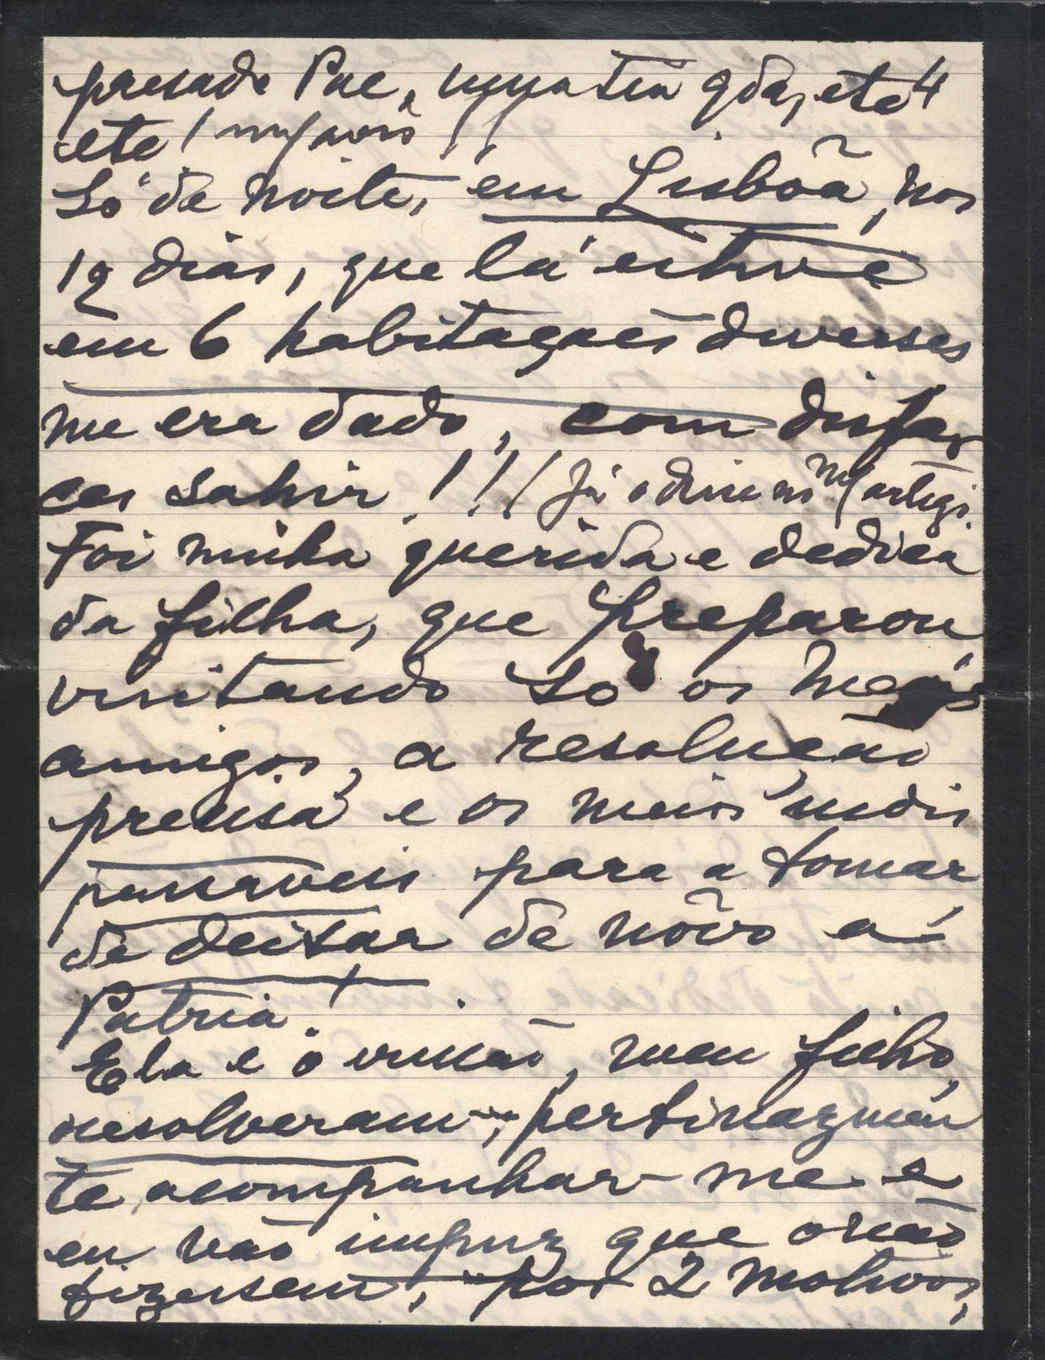 presado Pae, etc
etc
Só de noite, em Lisbôa, nos
12 dias, que lá estive
em 6 habitações diversas
me era dado, com disfar
ces sahir!!! (já o disse
Foi minha querida e dedica
da filha, que preparou,
visitando só os meus
amigos, a resolução
precisa e os meios indis
pensaveis para a tomar,
de deixar de nôvo a
Patria!
Ela e o irmão, meu filho,
resolveram, pertinazmen
te, acompanhar-me e
eu não impuz que o não
fizessem, por 2 motivos,